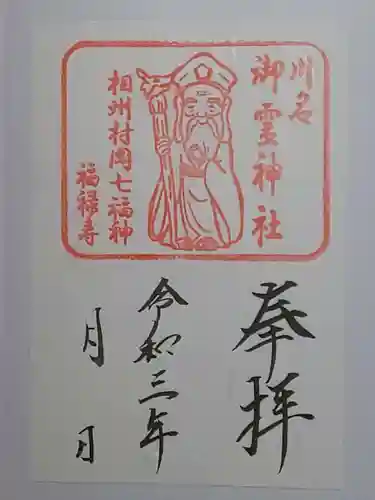 川名
御霊神社
相州村岡七福神
福禄寿
奉拝
令和三年
月 日